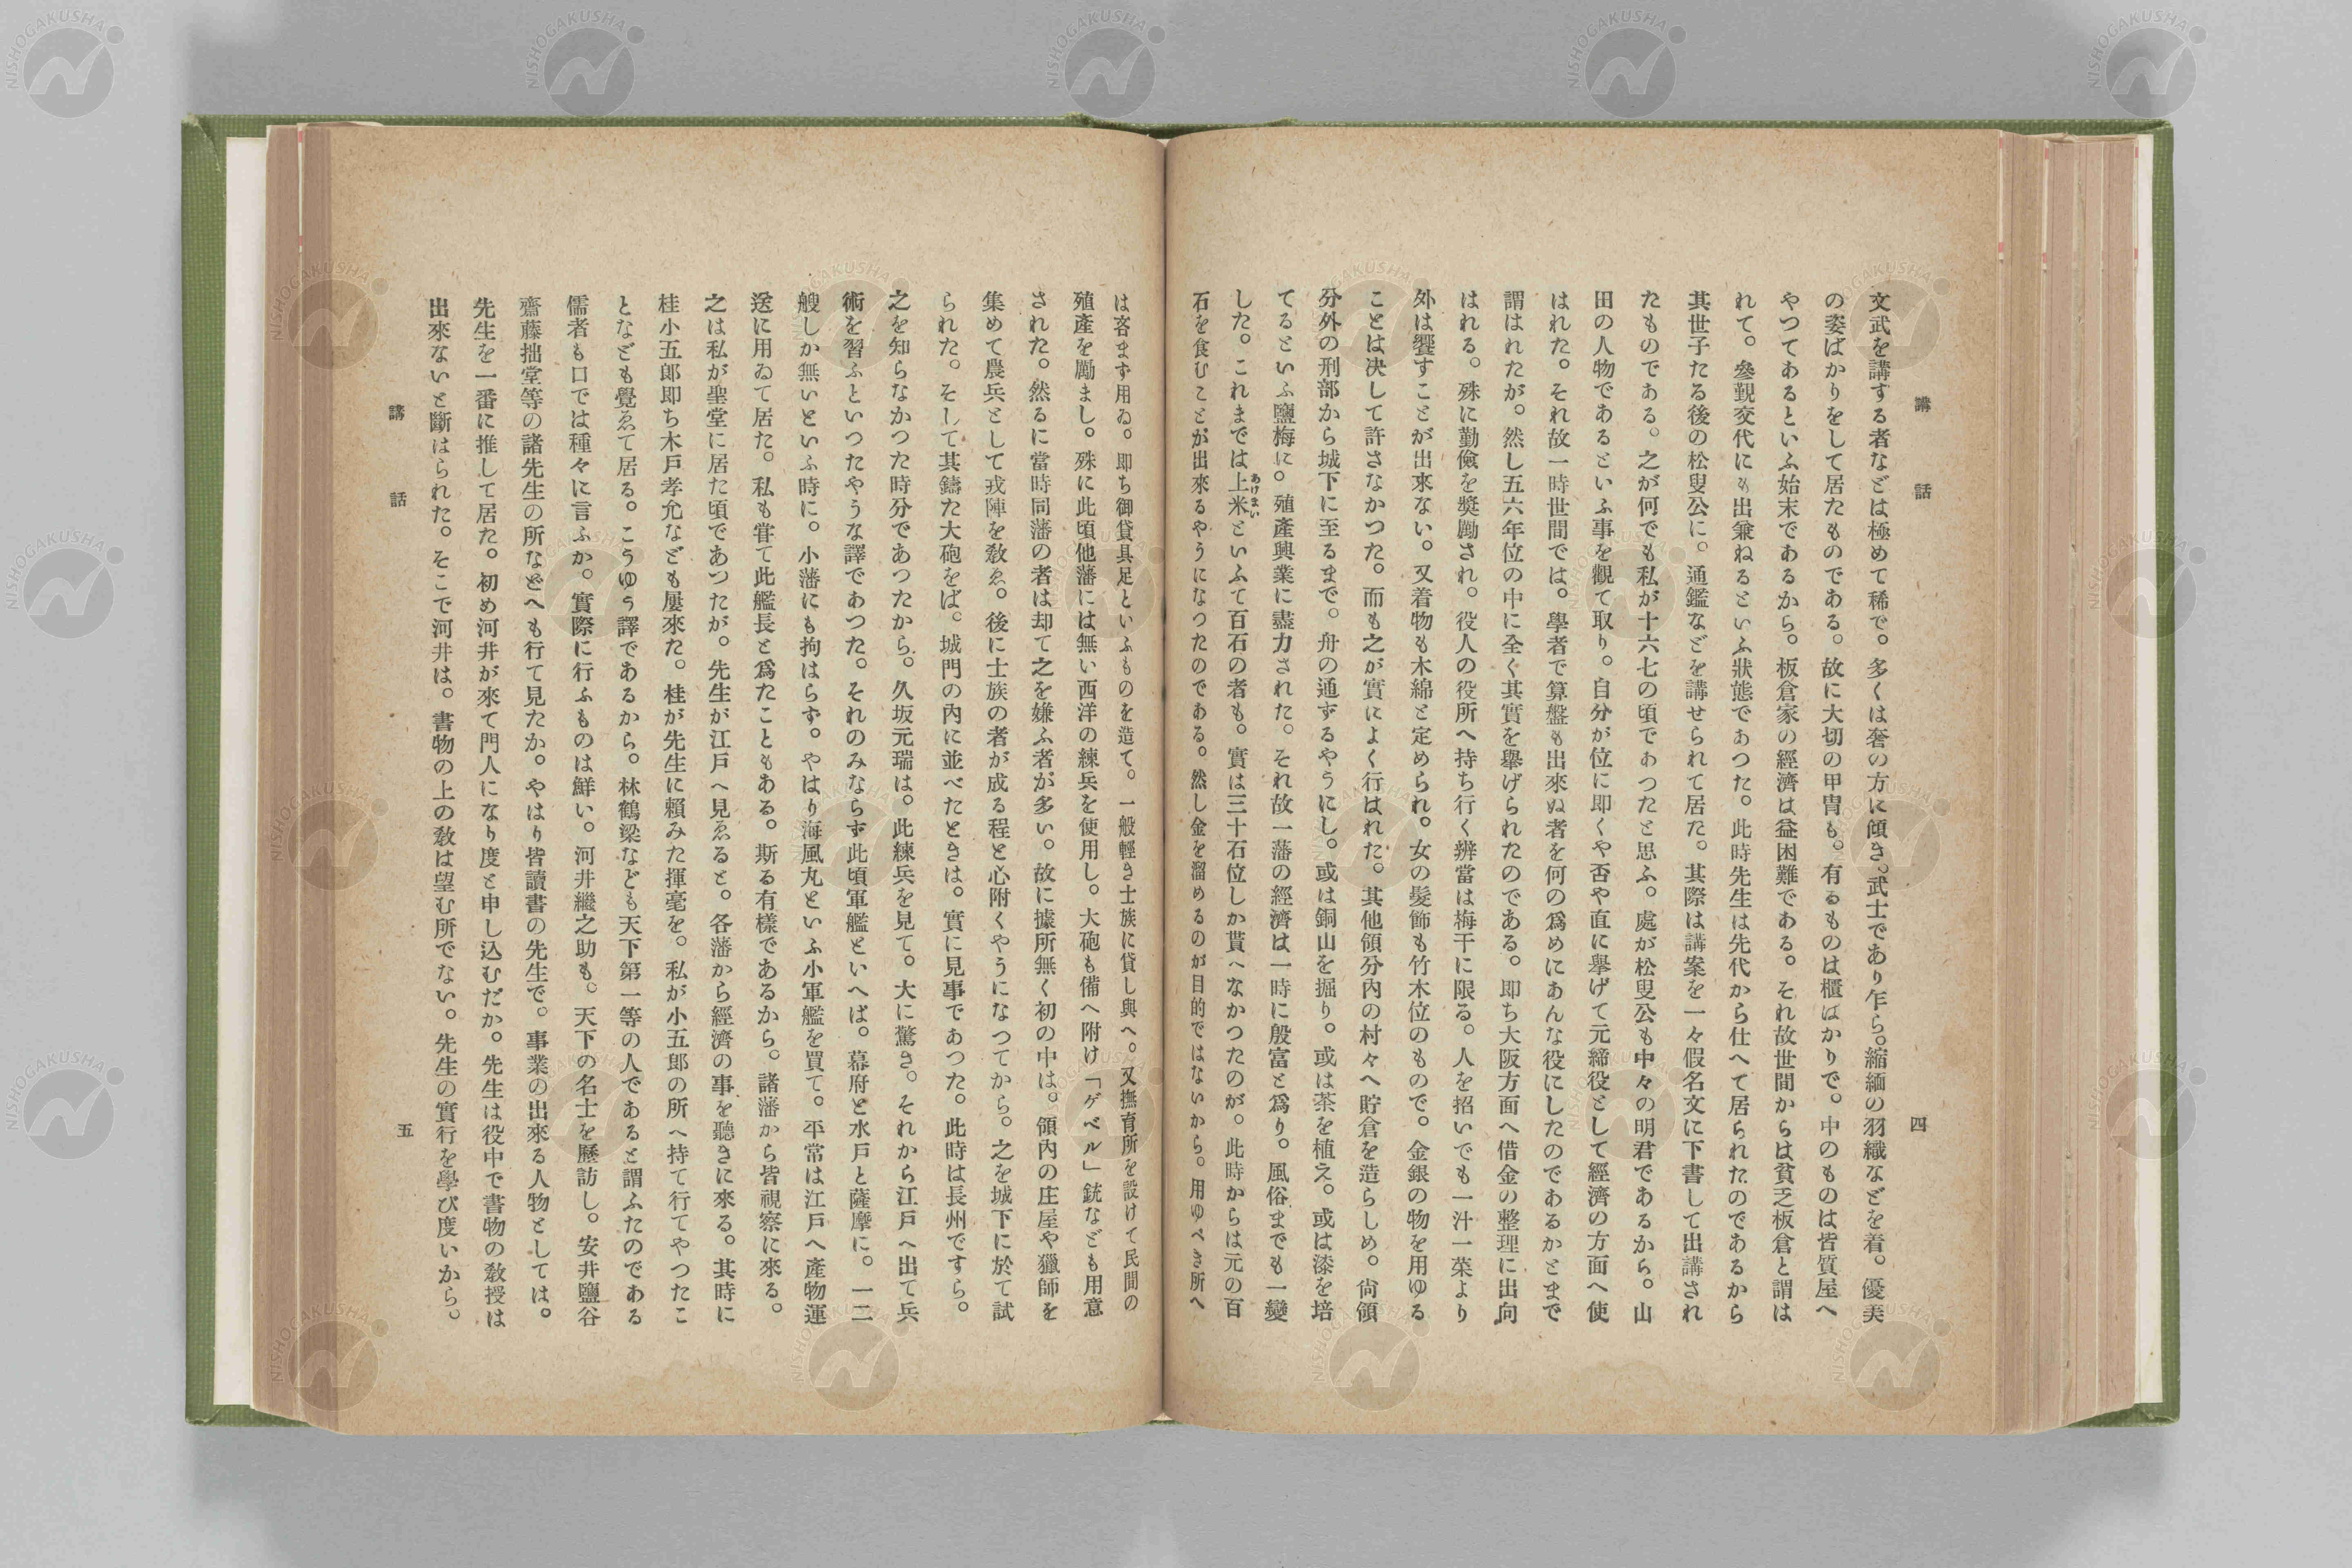 講話
四
文武を講ずる者などは極めて稀で。多くは奢の方に傾き。武士であり乍ら。縮緬の羽織などを着。優美
の姿ばかりをして居たものである。故に大切の甲冑も。有るものは櫃ばかりで。中のものは皆質屋へ
やつてあるといふ始末であるから。板倉家の經濟は益困難である。それ故世間からは貧乏板倉と謂は
れて。參覲交代にも出兼ねるといふ狀態であつた。此時先生は先代から仕へて居られたのであるから
其世子たる後の松叟公に。通鑑などを講せられて居た。其際は講案を一々假名文に下書して出講され
たものである。之が何でも私が十六七の頃であつたと思ふ。處が松叟公も中々の明君であるから。山
田の人物であるといふ事を觀て取り。自分が位に即くや否や直に擧げて元締役として經濟の方面へ使
はれた。それ故一時世間では。學者で算盤も出來ぬ者を何の爲めにあんな役にしたのであるかとまで
謂はれたが。然し五六年位の中に全く其實を擧げられたのである。即ち大阪方面へ借金の整理に出向
はれる。殊に勤儉を奬勵され。役人の役所へ持ち行く辨當は梅干に限る。人を招いでも一汁一菜より
外は饗すことが出來ない。又着物も木綿と定められ。女の髮飾も竹木位のもので。金銀の物を用ゆる
ことは决して許さなかつた。而も之が實によく行はれた。其他領分內の村々へ貯倉を造らしめ。尙領
分外の刑部から城下に至るまで。舟の通ずるやうにし。或は銅山を掘り。或は茶を植え。或は漆を培
てるといふ鹽梅に。殖產興業に盡力された。それ故一藩の經濟は一時に殷富と爲り。風俗までも一變
した。これまでは上米といふて百石の者も。實は三十石位しか貰へなかつたのが。此時からは元の百
あけまい
石を食むことが出來るやうになつたのである。然し金を溜めるのが目的ではないから。用ゆべき所へ
は吝ます用ゐ。即ち御貸具足といふものを造て。一般輕き士族に貸し與へ。又撫育所を設けて民間の
殖產を勵まし。殊に此頃他藩には無い西洋の練兵を使用し。大砲も備へ附け「ゲベル」銃なども用意
された。然るに當時同藩の者は却て之を嫌ふ者が多い。故に據所無く初の中は。領內の庄屋や獵師を
集めて農兵として戎陣を敎ゑ。後に士族の者が成る程と心附くやうになつてから。之を城下に於て試
られた。そして其鑄た大砲をば。城門の內に並べたときは。實に見事であつた。此時は長州ですら。
之を知らなかつた時分であつたから。久坂元瑞は。此練兵を見て。大に驚き。それから江戸へ出て兵
術を習ふといつたやうな譯であつた。それのみならず此頃軍艦といへば。幕府と水戸と薩摩に。一二
艘しか無いといふ時に。小藩にも拘はらず。やはり海風丸といふ小軍艦を買て。平常は江戸へ產物運
送に用ゐて居た。私も甞て此艦長と爲たこともある。斯る有樣であるから。諸藩から皆視察に來る。
之は私が聖堂に居た頃であつたが。先生が江戸へ見ゑると。各藩から經濟の事を聽きに來る。其時に
桂小五郎即ち木戸孝允なども屢來た。桂が先生に賴みた揮毫を。私が小五郎の所へ持て行てやつたこ
となども覺ゑて居る。こうゆう譯であるから。林鶴梁なども天下第一等の人であると謂ふたのである
儒者も口では種々に言ふか。實際に行ふものは鮮い。河井繼之助も。天下の名士を歷訪し。安井鹽谷
齋藤拙堂等の諸先生の所などへも行て見たか。やはり皆讀書の先生で。事業の出來る人物としては。
先生を一番に推して居た。初め河井が來て門人になり度と申し込むだか。先生は役中で書物の敎授は
出來ないと斷はられた。そこで河井は。書物の上の敎は望む所でない。先生の實行を學び度いから。
講話
五